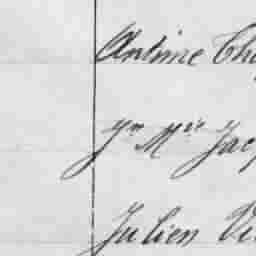 Antime Cha
Jn Mie Jacq
Julien Vi